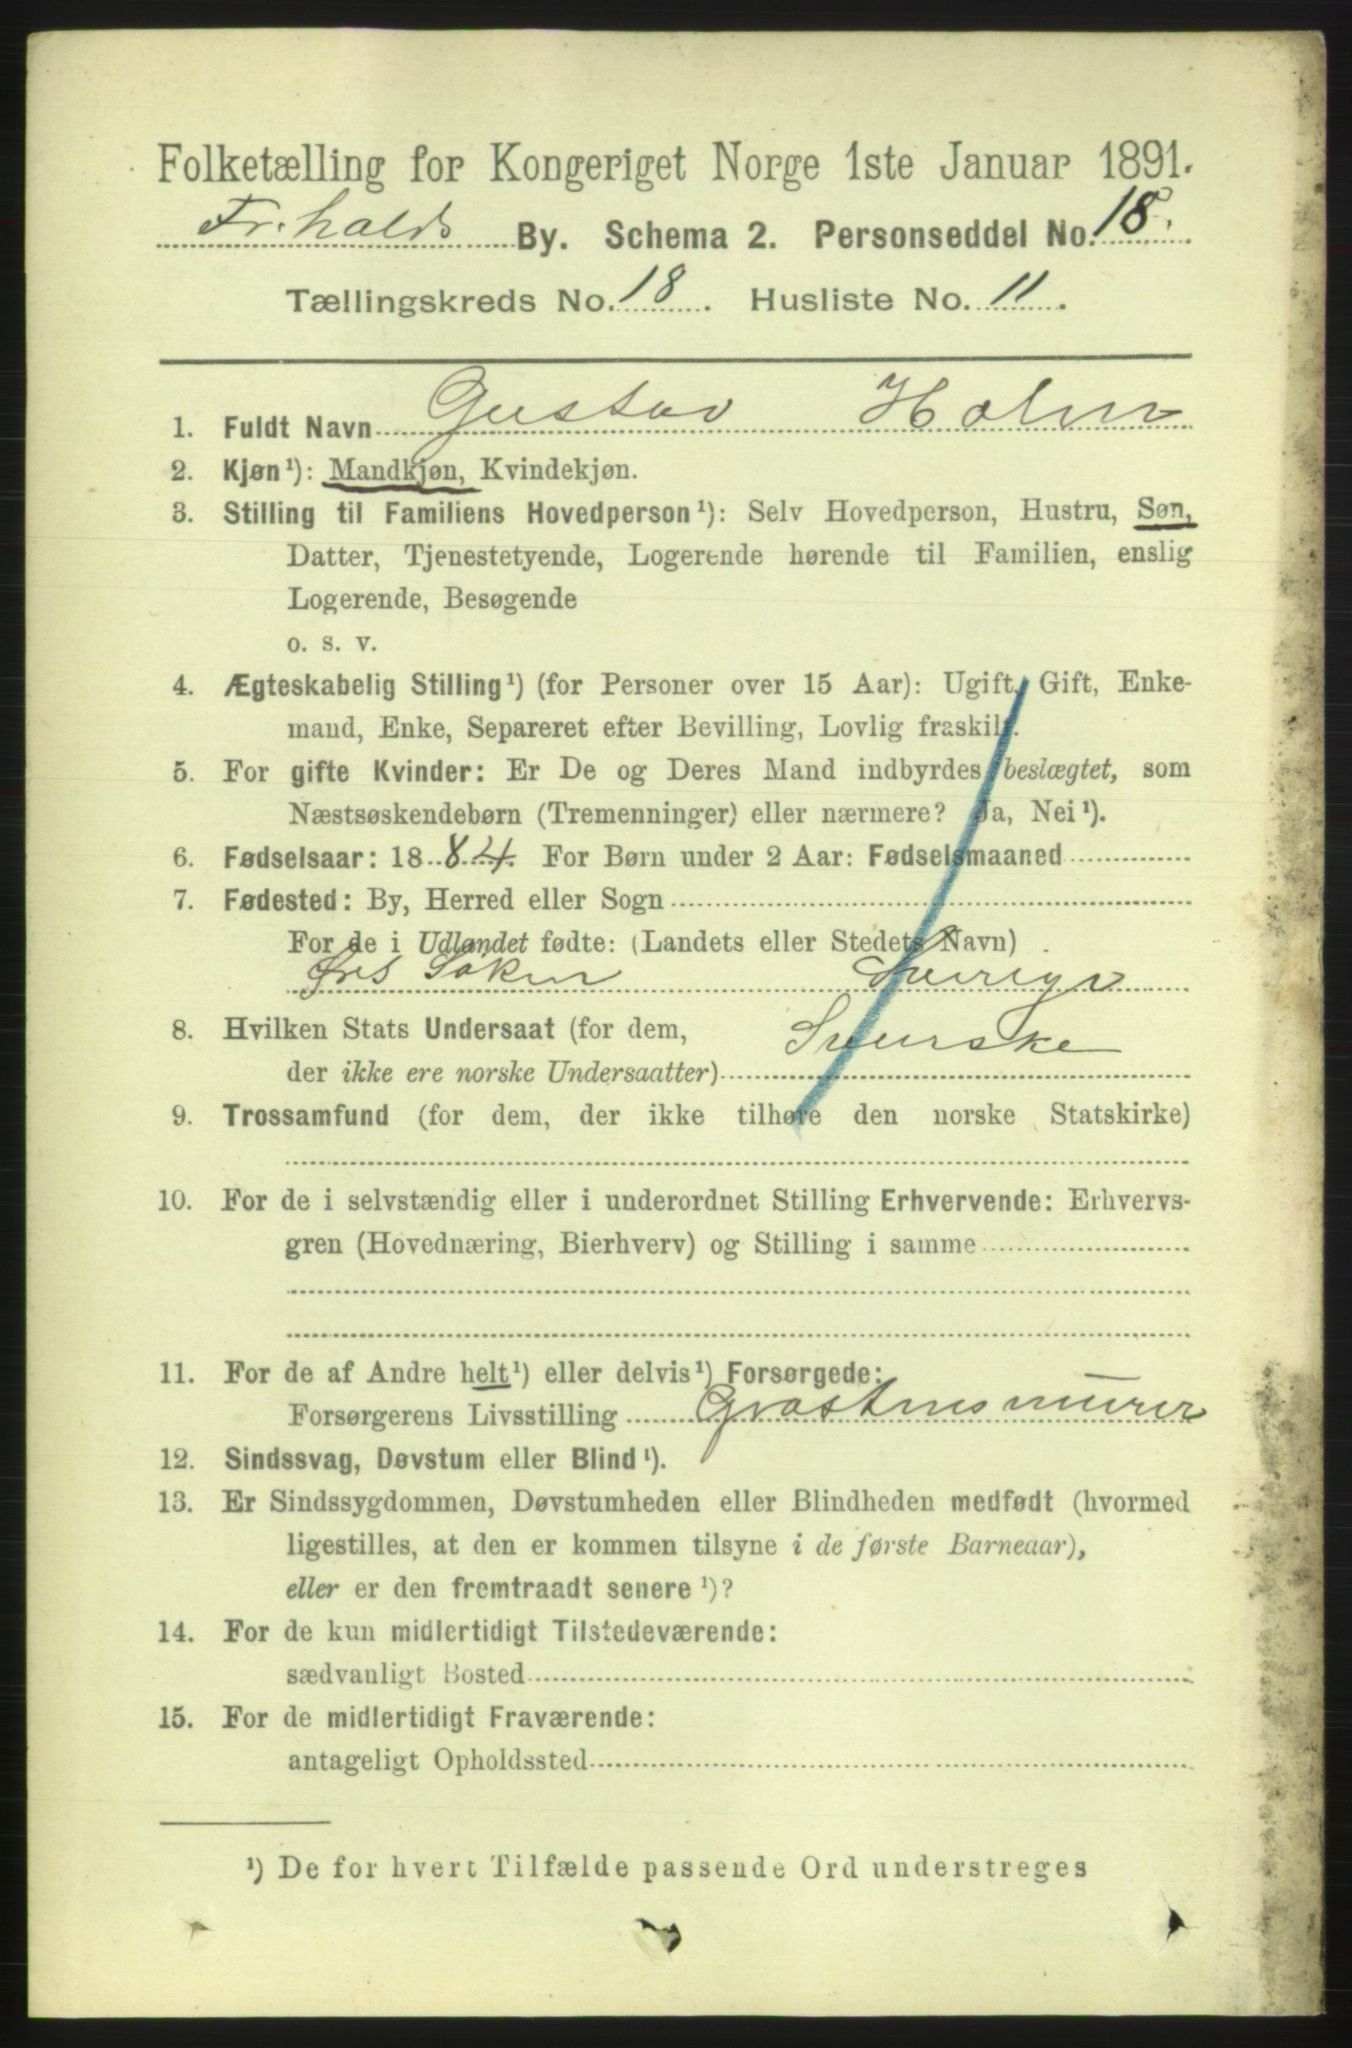 Folketælling for Kongeriget Norge 1ste Januar 1891.
Fr.halds By. Schema 2. Personseddel No. 18.
Tællingskreds No. 18. Husliste No. 11.
1. Fuldt Navn Gustav Holm
2. Kjøn¹): Mandkjøn, Kvindekjøn.
3. Stilling til Familiens Hovedperson¹): Selv Hovedperson, Hustru, Søn,
Datter, Tjenestetyende, Logerende hørende til Familien, enslig
Logerende, Besøgende
o. s. v.
4. Ægteskabelig Stilling¹) (for Personer over 15 Aar): Ugift, Gift, Enke-
mand, Enke, Separeret efter Bevilling, Lovlig fraskilt.
5. For gifte Kvinder: Er De og Deres Mand indbyrdes beslægtet, som
Næstsøskendebørn (Tremenninger) eller nærmere? Ja, Nei¹).
6. Fødselsaar: 1884. For Børn under 2 Aar: Fødselsmaaned
7. Fødested: By, Herred eller Sogn
For de i Udlandet fødte: (Landets eller Stedets Navn)
Sverige
8. Hvilken Stats Undersaat (for dem, Svenske
der ikke ere norske Undersaatter)
9. Trossamfund (for dem, der ikke tilhøre den norske Statskirke)
10. For de i selvstændig eller i underordnet Stilling Erhvervende: Erhvervs-
gren (Hovednæring, Bierhverv) og Stilling i samme
11. For de af Andre helt¹) eller delvis¹) Forsørgede:
Forsørgerens Livsstilling Graastensmurer
12. Sindssvag, Døvstum eller Blind¹).
13. Er Sindssygdommen, Døvstumheden eller Blindheden medfødt (hvormed
ligestilles, at den er kommen tilsyne i de første Barneaar),
eller er den fremtraadt senere¹)?
14. For de kun midlertidigt Tilstedeværende:
sædvanligt Bosted
15. For de midlertidigt Fraværende:
antageligt Opholdssted
¹) De for hvert Tilfælde passende Ord understreges